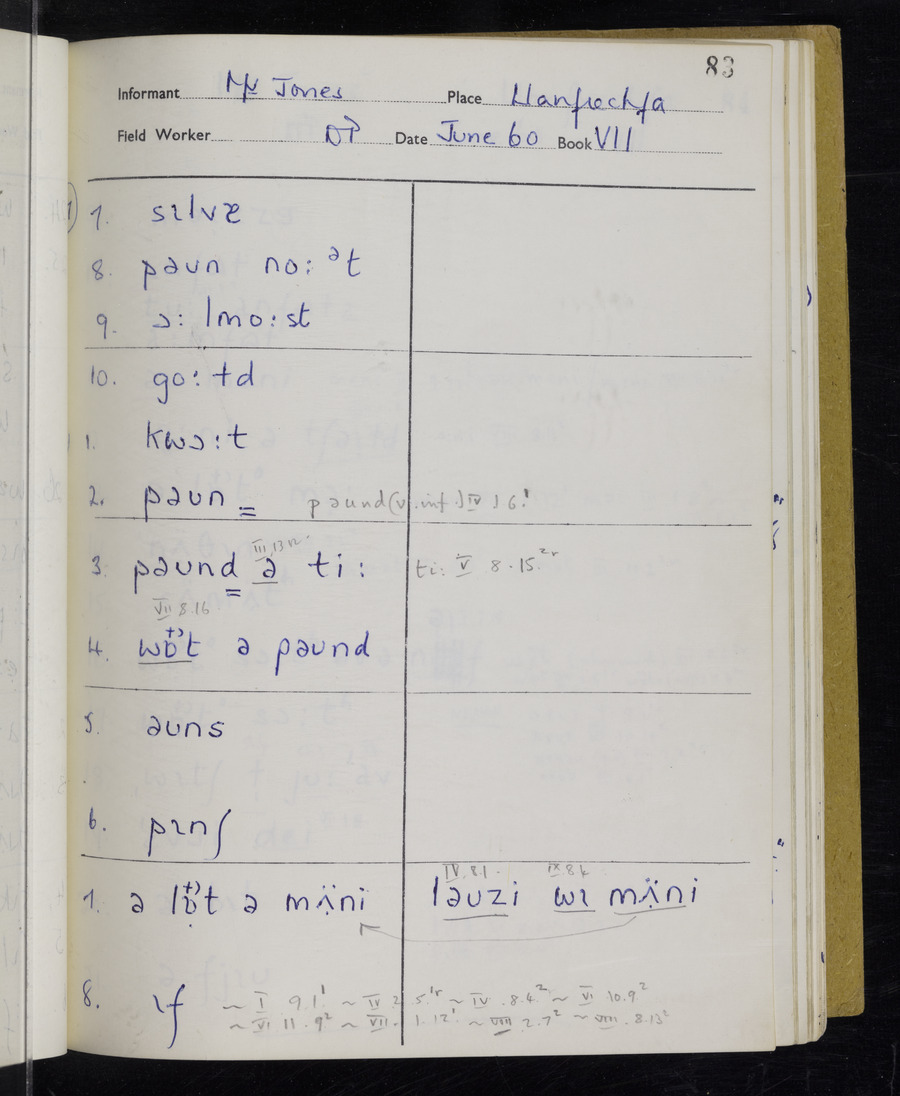 83
Informant Mr Jones Place Llanfrechfa
Field Worker DP Date June 60 Book VII
7. sɪlvə
8. pəʊn no:ᵊt
9. ɔ: lmo:st
10. go:ɫd
1. kwɔ:t
2. pəʊn paund (v. inf.) IV
III 13 12
3. pəund ə ti: ti: V 8.15
VII 8.16
4. wɒt ə pəund
5. əʊns
6. pɪnʃ
IV 8.1 IX 8.4
7. ə lɒt ə mʌ̈ni ləuzi wɪ mʌ̈ni
8. ɪf ~ I 9.1¹ ~ IV 2 5.¹ʳ ~ IV .8.4² ~ VI 10.9²
~ VI 11.9² ~ VII. 1.12¹ ~ VIII 2.7² ~ VIII .8.13²